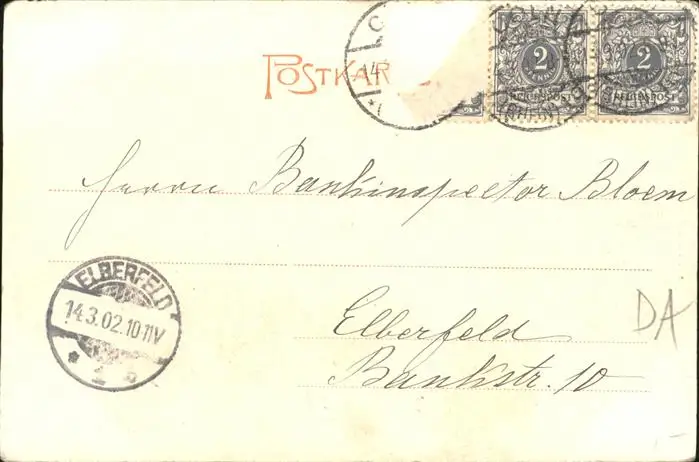 POSTKAR
CÖLN
2
PFENNIG
REICHSPOST
2
PFENNIG
REICHSPOST
14
Herrn Bankinspector Bloem
ELBERFELD
14.3.02.10-11V
* 1 o
Elberfeld
Bankstr. 10
DA